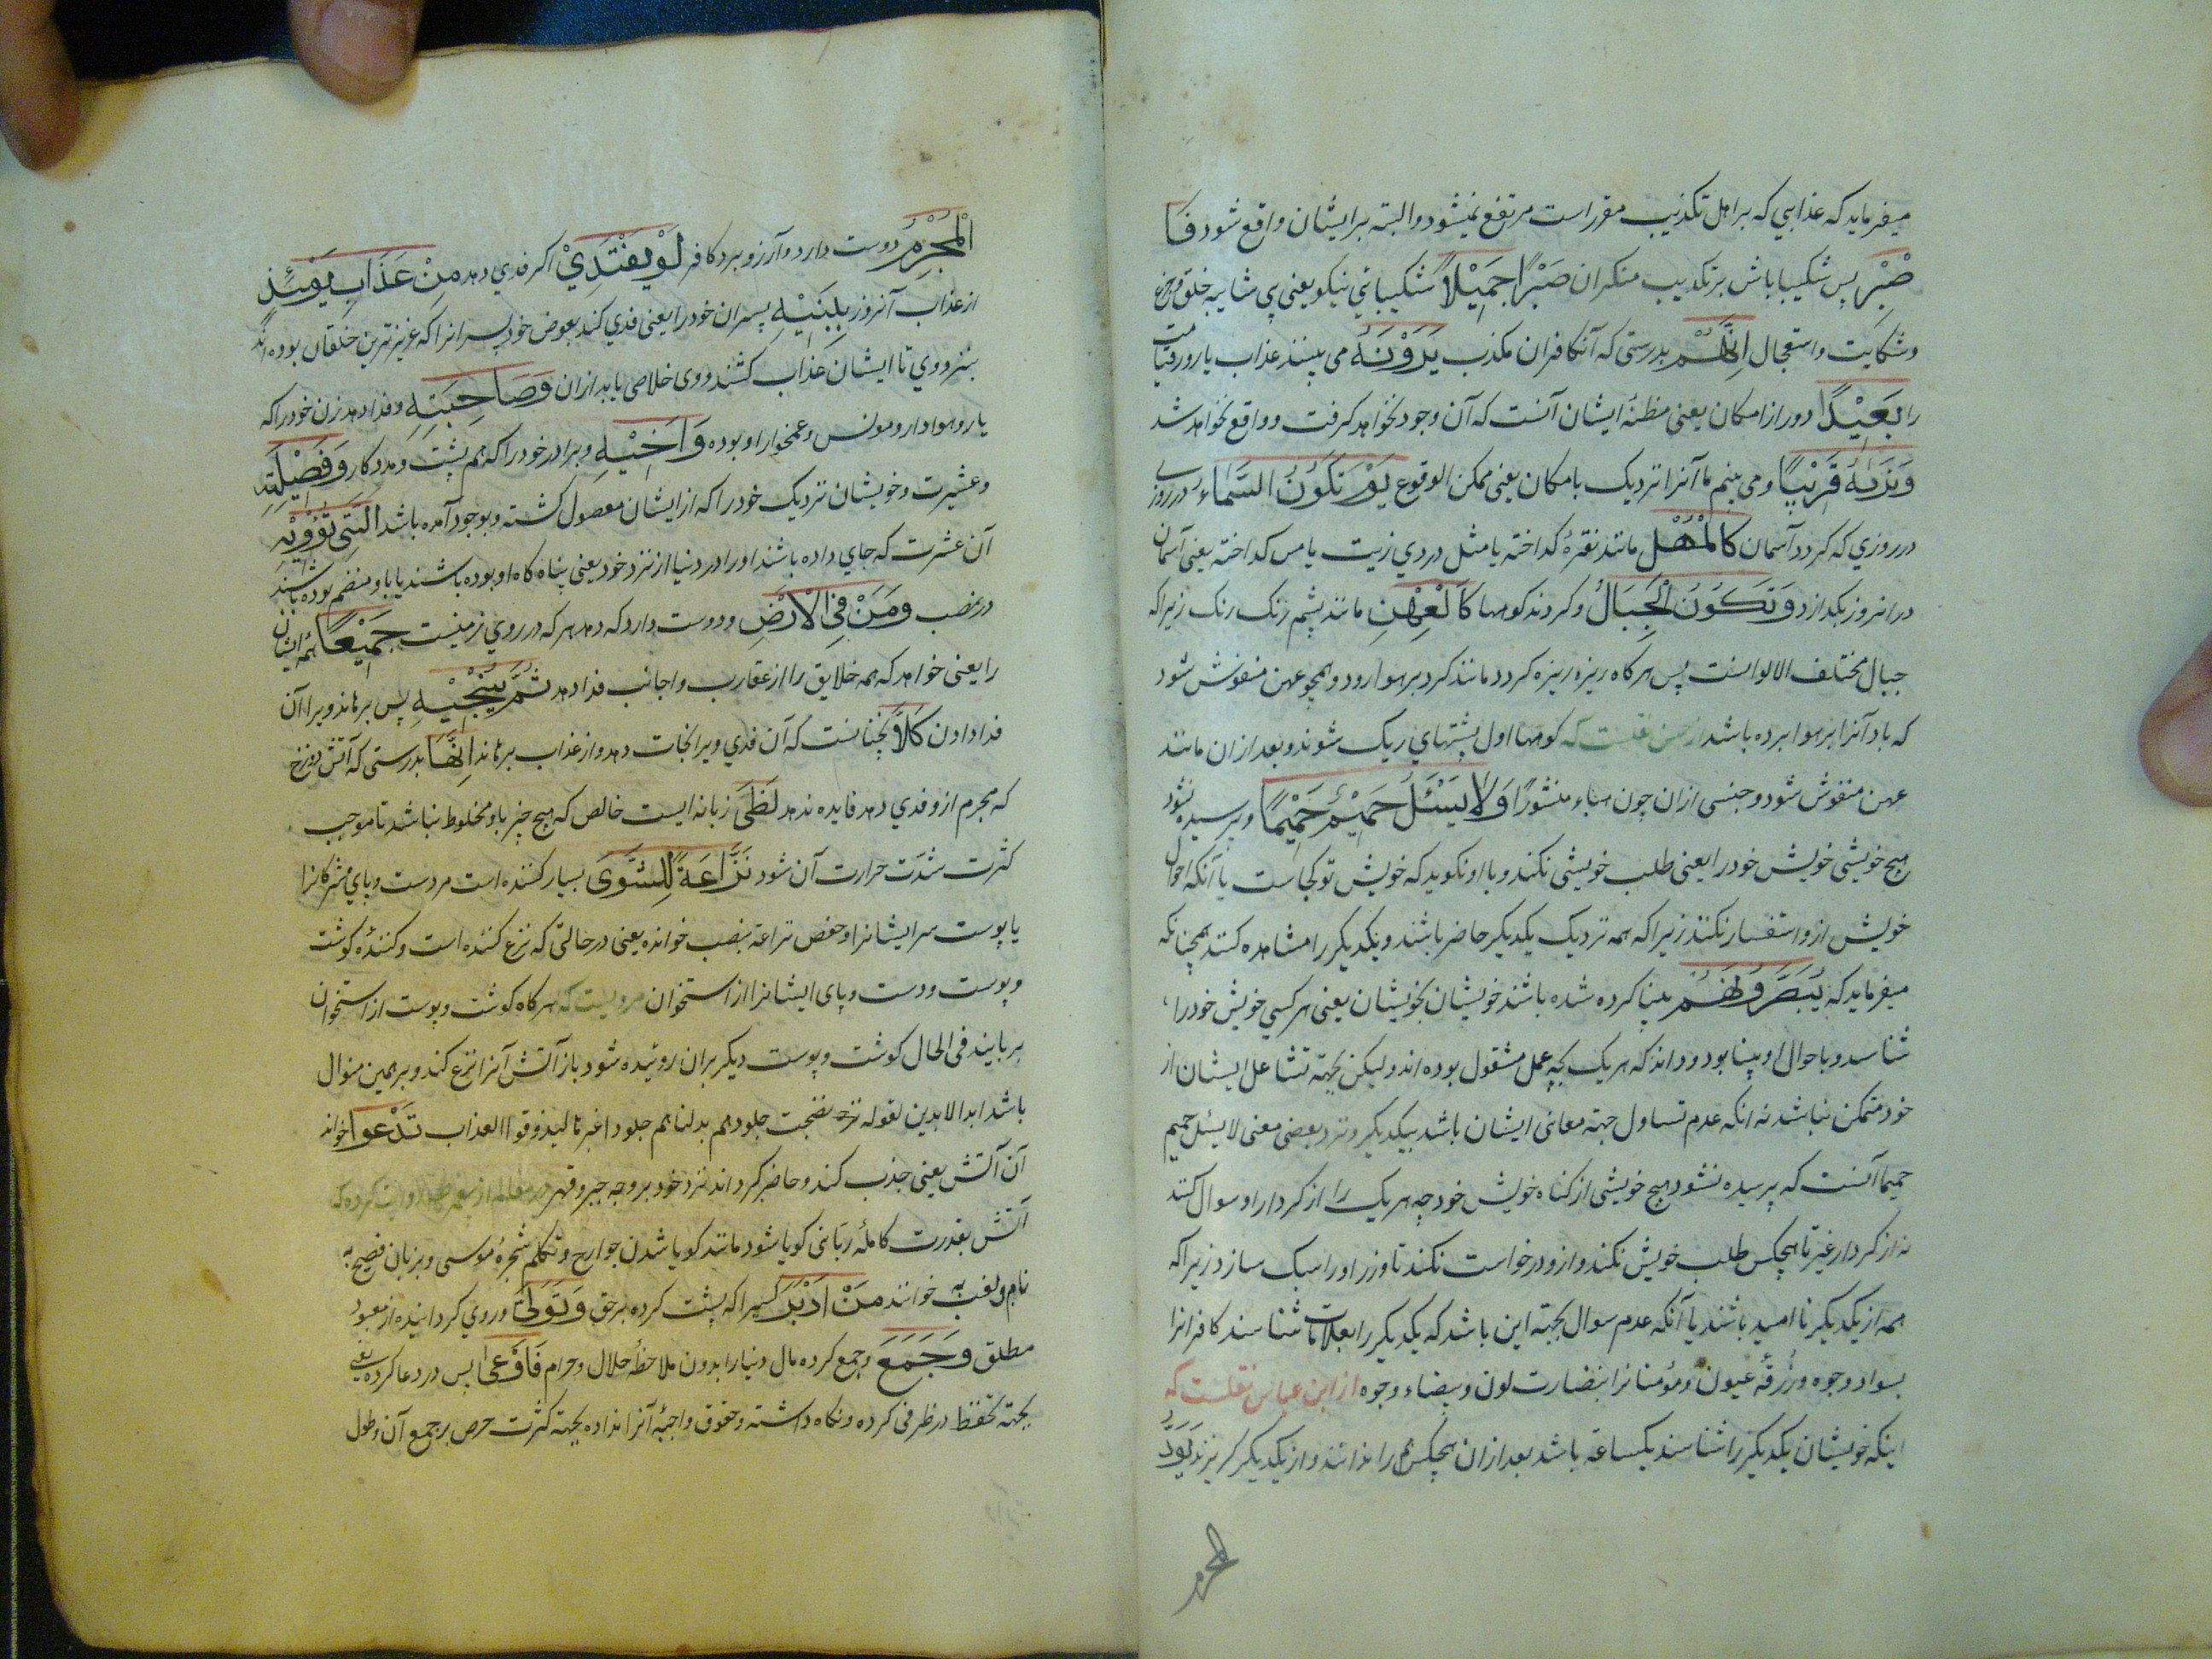 میفرماید که عذابی که بر اهل تکذیب مقرر است مرتفع نمیشود و البته بر ایشان واقع شود فَا
صْبِرْ پس شکیبا باش بر تکذیب منکران صَبْرًا جَمِيْلًا شکیبائی نیکو یعنی بی شایبه خلق و جزع
و شکایت و استعجال اِنَّهُمْ بدرستی که آنکافران مکذب يَرَوْنَهُ می بینند عذاب یا روز قیامت
را بَعِيْدًا دور از امکان یعنی مظنهٔ ایشان آنست که آن وجود نخواهد کرفت و واقع نخواهد شد
وَنَرٰىهُ قَرِيْبًا و می بینم ما آنرا نزدیک بامکان یعنی ممکن الوقوع يَوْمَ تَكُوْنُ السَّمَاءُ در روز
در روزی که کردد آسمان كَالْمُهْلِ مانند نقرهٔ کداخته یا مثل دردی زیت یا مس کداخته یعنی آسمان
در انروز بکدازد وَتَكُوْنُ الْجِبَالُ و کردند کوهها كَالْعِهْنِ مانند پشم رنک رنک زیرا که
جبال مختلف الالوانست پس هرکاه ریزه ریزه کردد مانند کرد بر هوا رود و همچو عهن منفوش شود
که باد آنرا بر هوا برده باشد از حسن نقلست که کوهها اول پشتهای ریک شوند و بعد از ان مانند
عهن منفوش شود و جنسی از ان چون هباء منثورًا وَلَا يَسْئَلُ حَمِيْمٌ حَمِيْمًا و پرسیده نشود
هیچ خویشی خویش خود را یعنی طلب خویشی نکند و با او نکوید که خویش تو کجاست یا آنکه احوال
خویش از و استفسار نکنند زیرا که همه نزدیک یکدیکر حاضر باشند و یکدیکر را مشاهده کنند همچنانکه
میفرماید که يُبَصَّرُوْنَهُمْ بینا کرده شده باشند خویشان بخویشان یعنی هر کسی خویش خود را
شناسد و باحوال او بینا بود و داند که هر یک بچه عمل مشقول بوده اند ولیکن بجهة تشاغل ایشان از
خود متمکن نباشد نه انکه عدم تساول جهة معانی ایشان باشد بیکدیکر و نزد بعضی معنی لا یسئل حمیم
حمیما آنست که پرسیده نشود هیچ خویشی از کناه خویش خود چه هر یک را از کردار او سوال کنند
نه از کردار غیر تا هیچکس طلب خویش نکند و از و درخواست نکند تا وزر او را سبک سازد زیرا که
همه از یکدیکر نا امید باشند یا آنکه عدم سوال بجهة این باشد که یکدیکر را بعلامات شناسند کافرانرا
بسواد وجوه و زرقهٔ عیون و مؤمنانرا بنضارت لون و بیضاء وجوه از ابن عباس نقلست که
اینکه خویشان یکدیکر را شناسند یکساعة باشد بعد از ان هیچکس را ندانند و از یکدیکر کریزند يَوَدُّ
المجرم
الْمُجْرِمُ دوست دارد و آرزو برد کافر لَوْ يَفْتَدِيْ اکر فدی دهد مِنْ عَذَابِ يَوْمَئِذٍ
از عذاب آنروز بِبَنِيْهِ پسران خود را یعنی فدی کند بعوض خود پسرانرا که عزیزترین خلقان بوده اند
بنزد وی تا ایشان عذاب کشند و وی خلاصی یابد از ان وَصَاحِبَتِهِ و فدا دهد زن خود را که
یار و هوادار و مونس و غمخوار او بوده وَاَخِيْهِ و برادر خود را که هم پشت و مددکار وَفَصِيْلَتِهِ
و عشیرت و خویشان نزدیک خود را که از ایشان مفصول کشته و بوجود آمده باشد الَّتِيْ تُؤْوِيْهِ
آن عشرت که جای داده باشند او را در دنیا از نزد خود یعنی پناه کاه او بوده باشند یا باو منضم بوده باشند
در نصب وَمَنْ فِي الْاَرْضِ و دوست دارد که دهد هر که در روی زمینست جَمِيْعًا همه ایشان
را یعنی خواهد که همه خلایق را از عقارب و اجانب فدا دهد ثُمَّ يُنْجِيْهِ پس برهاند ویرا آن
فدا دادن كَلَّا نچنانست که آن فدی ویرا نجات دهد و از عذاب برهاند اِنَّهَا بدرستی که آتش دوزخ
که مجرم از و فدی دهد فایده ندهد لَظٰى زبانه ایست خالص که هیچ چیز باو مخلوط نباشد تا موجب
کثرت شدت حرارت آن شود نَزَّاعَةً لِلشَّوٰى بسیار کننده است مر دست و پای مشرکانرا
یا پوست سر ایشانرا و حفص نزاعة بنصب خوانده یعنی در حالتی که نزع کننده است و کنندهٔ کوشت
و پوست و دست و پای ایشانرا از استخوان مرویست که هرکاه کوشت و پوست از استخوان
بربایند فی الحال کوشت و پوست دیکر بران روئیده شود باز آتش آنرا نزع کند و بر همین منوال
باشد ابد الابدین لقوله تع نضجت جلودهم بدلناهم جلودا غیرها لیذوقوا العذاب تَدْعُوا خواند
آن آتش یعنی جذب کند و حاضر کرداند نزد خود بر وجه جبر و قهر
آتش بقدرت کاملهٔ ربانی کویا شود مانند کویا شدن جوارح و تکلم شجرهٔ موسی و بزبان فصیح به
نام و لقب خوانند مَنْ اَدْبَرَ کسیرا که پشت کرده بر حق وَتَوَلّٰى و روی کردانیده از معبود
مطلق وَجَمَعَ و جمع کرده مال دنیا را بدون ملاحظهٔ حلال و حرام فَاَوْعٰى پس در وعا کرده یعنی
بجهة تحفظ در ظرفی کرده و نکاه داشته و حقوق واجبهٔ آنرا نداده بجهة کثرت حرص بر جمع آن و طول